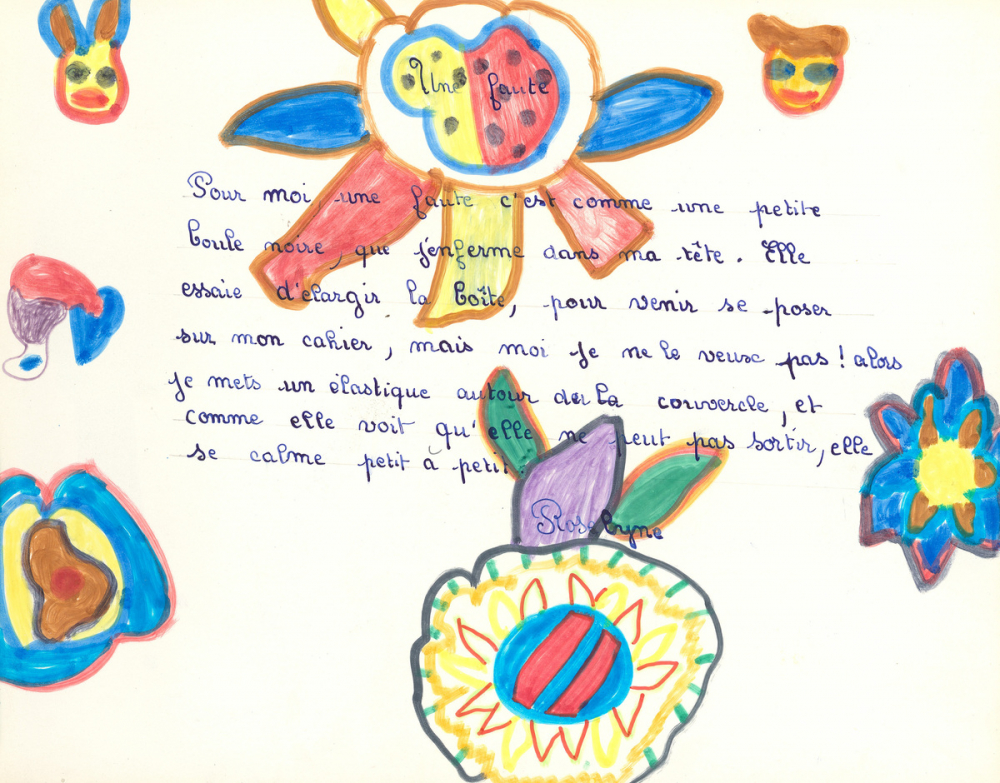 Une faute
Pour moi une faute c'est comme une petite
boule noire, que j'enferme dans ma tête. Elle
essaie d'élargir la boîte, pour venir se poser
sur mon cahier, mais moi je ne le veux pas! alors
je mets un élastique autour de la couvercle, et
comme elle voit qu'elle ne peut pas sortir, elle
se calme petit à petit.
Roselyne